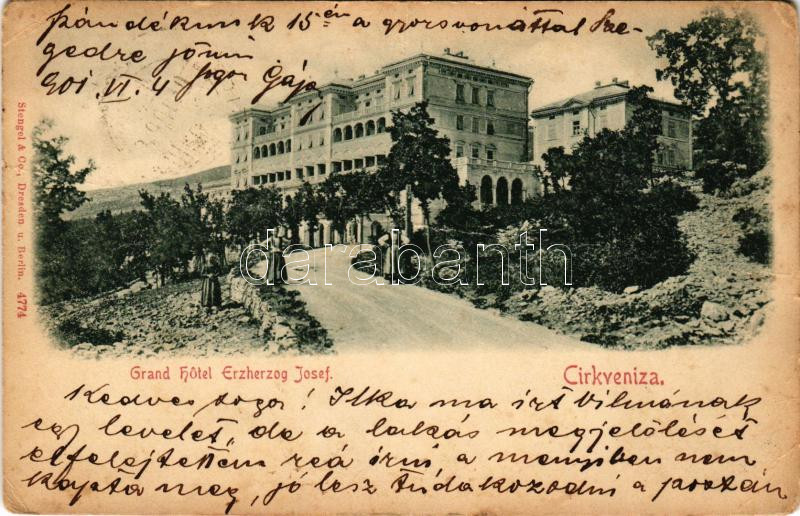 Szándékunk 15én a gyorsvonattal Sze-
gedre jönni
901. VI. 4 Jogor Gája
Stengel & Co., Dresden u. Berlin. 4774
darabanth
Grand Hôtel Erzherzog Josef.
Cirkveniza.
Kedves sogor! Ilka ma írt Vilmának
egy levelet, de a lakás megjelölését
elfelejtettem reá írni a menyiben nem
kapta meg, jó lesz tudakozodni a postán